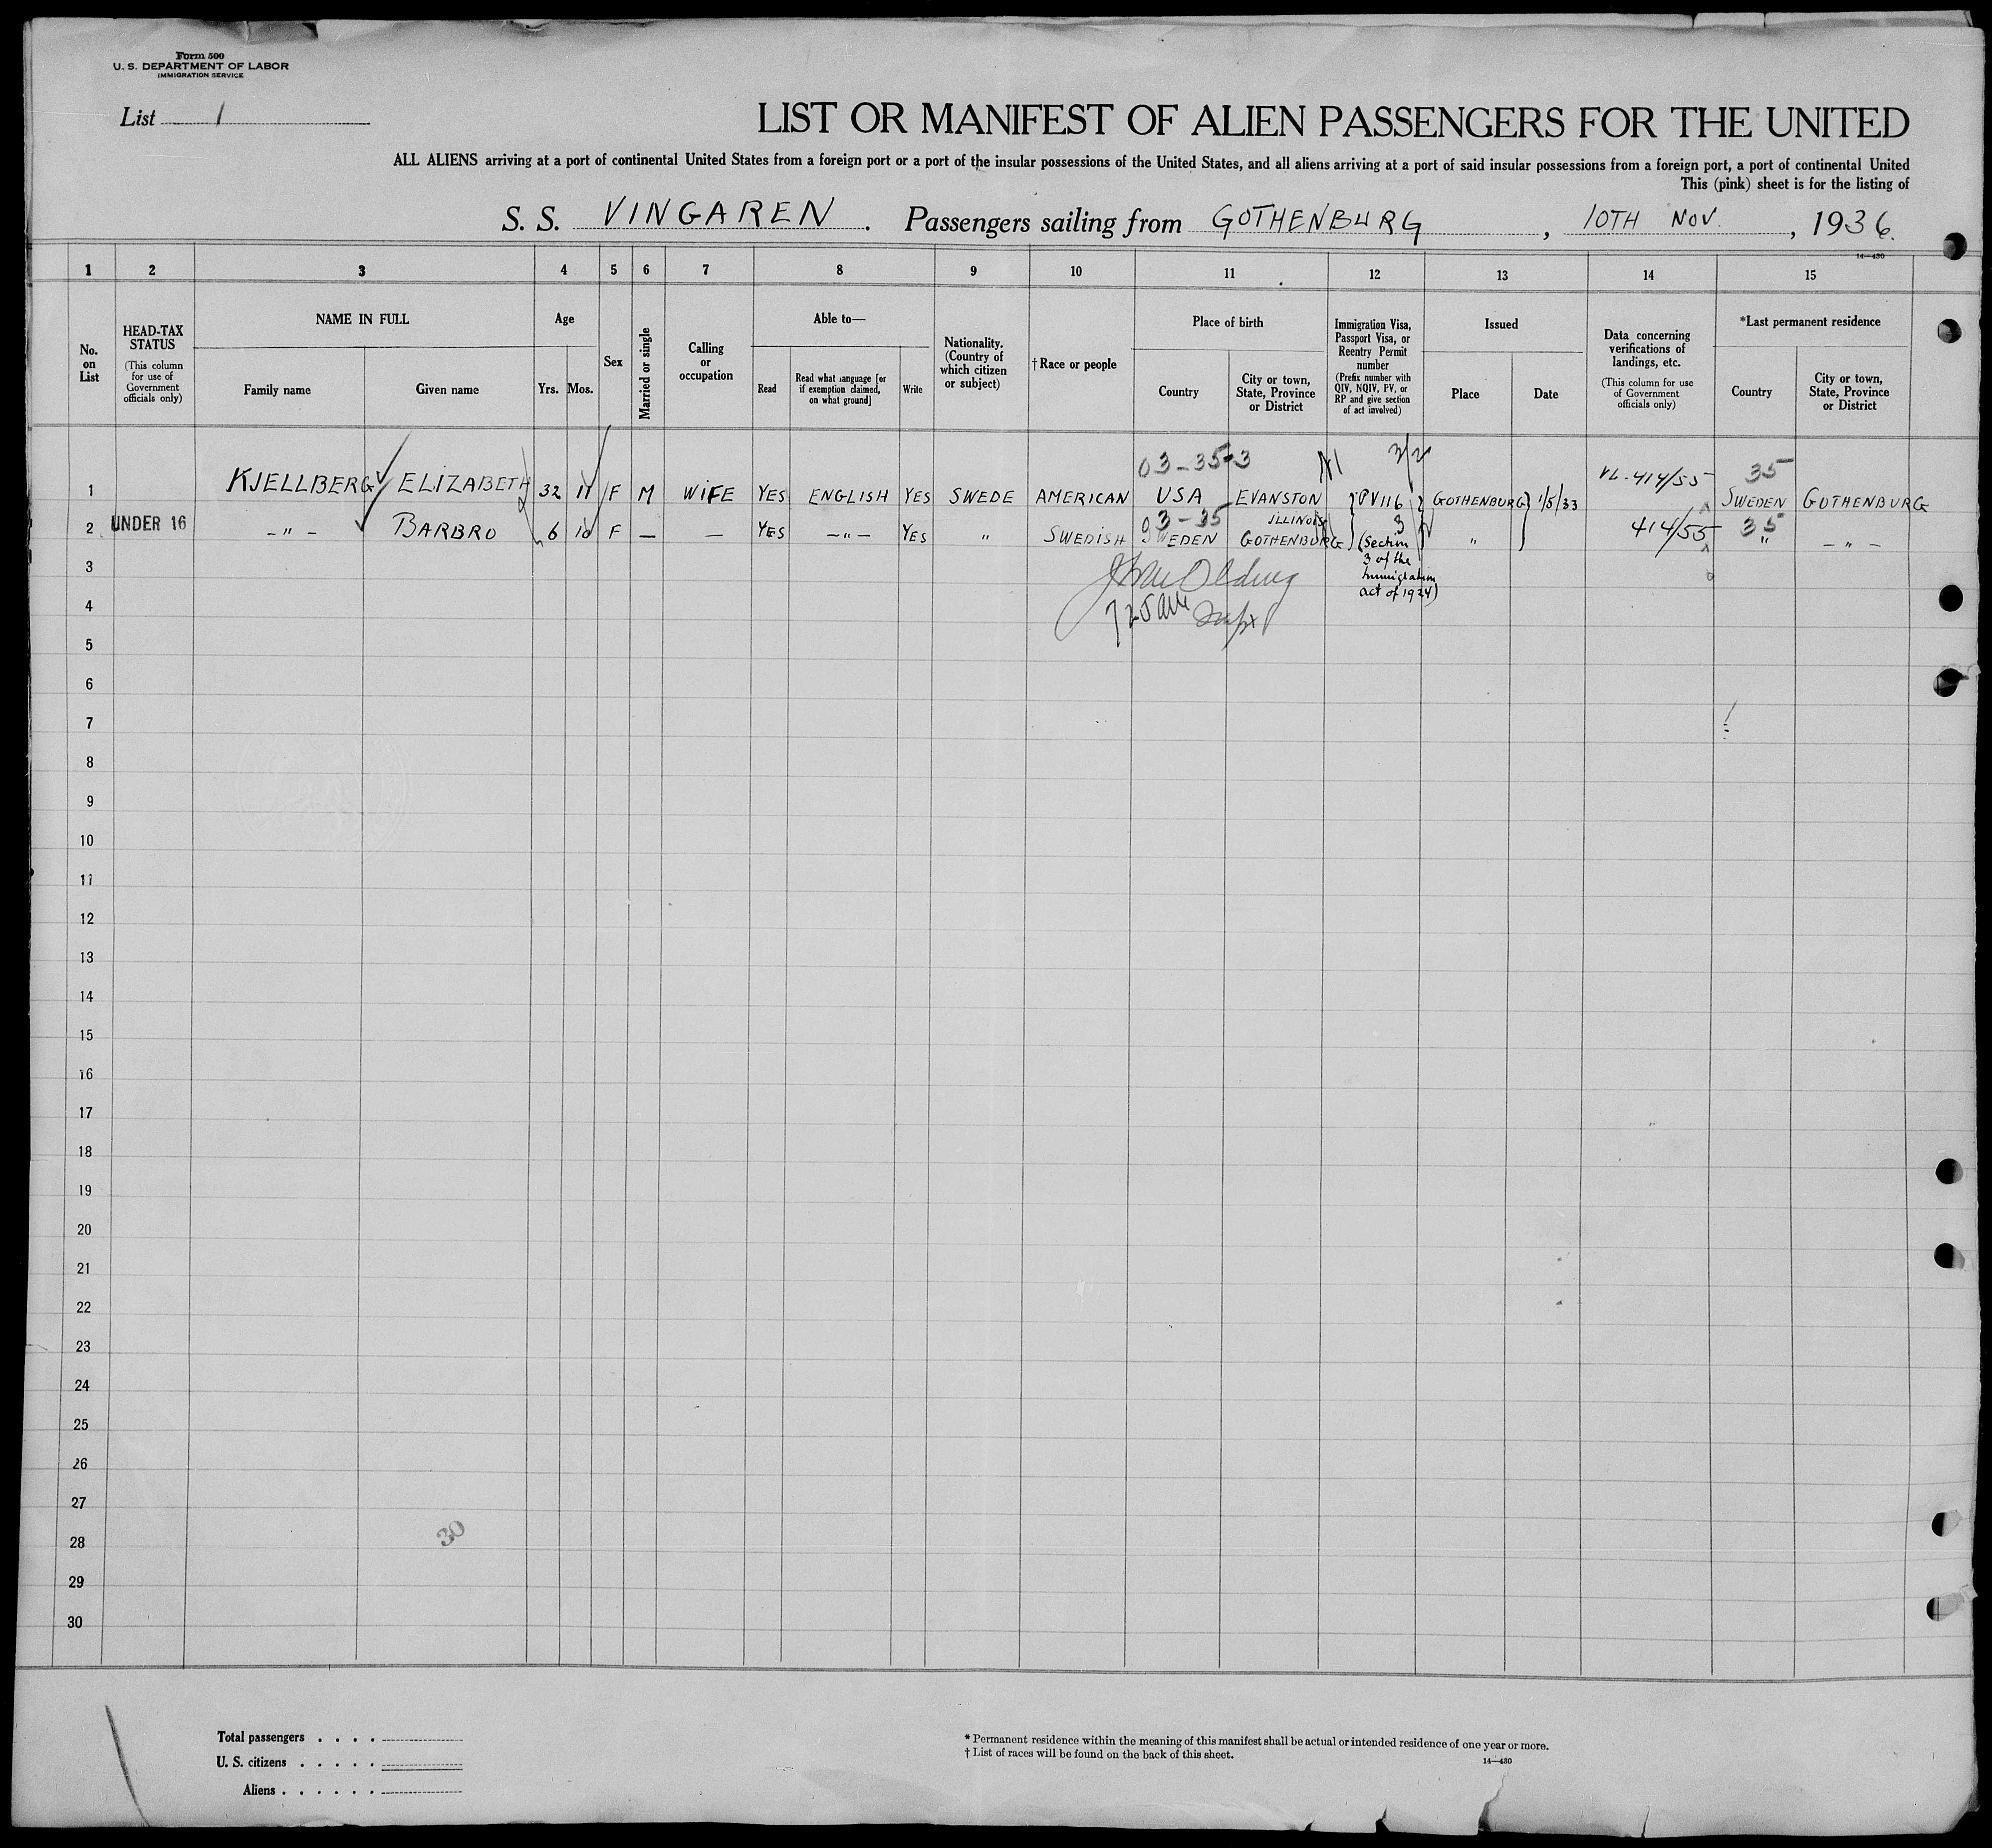 Form 500
U. S. DEPARTMENT OF LABOR
IMMIGRATION SERVICE
List 1
LIST OR MANIFEST OF ALIEN PASSENGERS FOR THE UNITED
ALL ALIENS arriving at a port of continental United States from a foreign port or a port of the insular possessions of the United States, and all aliens arriving at a port of said insular possessions from a foreign port, a port of continental United
This (pink) sheet is for the listing of
S. S. VINGAREN . Passengers sailing from GOTHENBURG , 10TH NOV. , 1936.
14—430
1 2 3 4 5 6 7 8 9 10 11 12 13 14 15
No. on List
HEAD-TAX STATUS
(This column for use of Government officials only)
NAME IN FULL
Family name
Given name
Age
Yrs. Mos.
Sex
Married or single
Calling or occupation
Able to—
Read
Read what language [or if exemption claimed, on what ground]
Write
Nationality. (Country of which citizen or subject)
†Race or people
Place of birth
Country
City or town, State, Province or District
Immigration Visa, Passport Visa, or Reentry Permit number
(Prefix number with QIV, NQIV, PV, or RP and give section of act involved)
Issued
Place
Date
Data concerning verifications of landings, etc.
(This column for use of Government officials only)
*Last permanent residence
Country
City or town, State, Province or District
03-35-3
414/55 35
1 KJELLBERG ELIZABETH 32 11 F M WIFE YES ENGLISH YES SWEDE AMERICAN USA EVANSTON PV116 GOTHENBURG 1/5/33 SWEDEN GOTHENBURG
ILLINOIS
03-35 3 414/55 35
2 UNDER 16 -"- BARBRO 6 10 F — — YES -"- YES " SWEDISH SWEDEN GOTHENBURG (Section " " -"-
3 of the
Immigration
act of 1924)
3
4
725 am
5
6
7
8
9
10
11
12
13
14
15
16
17
18
19
20
21
22
23
24
25
26
27
28
30
29
30
Total passengers . . . .
U. S. citizens . . . . .
Aliens . . . . . .
* Permanent residence within the meaning of this manifest shall be actual or intended residence of one year or more.
† List of races will be found on the back of this sheet.
14—430